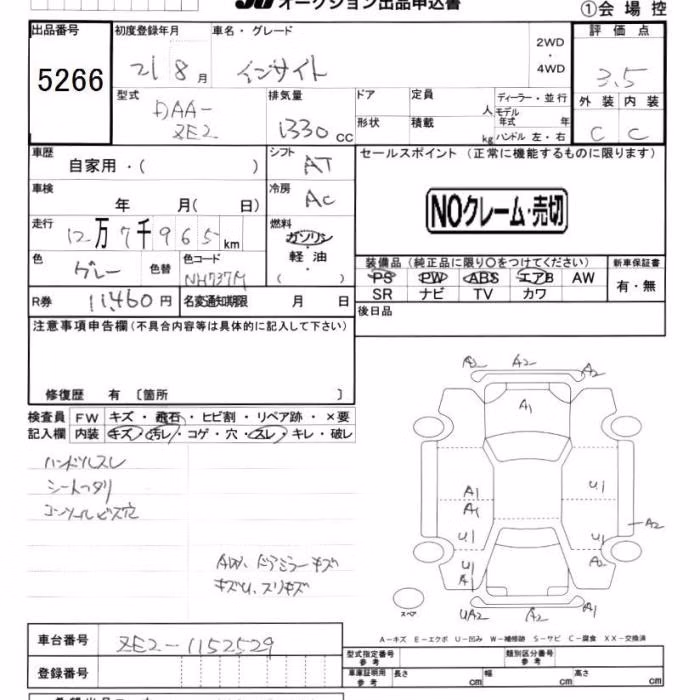 オークション出品申込書
①会場控
出品番号 初度登録年月 車名・グレード 評価点
5266 21 8月 インサイト 2WD・4WD 3.5
型式 排気量 ドア 定員 人 ディーラー・並行 外装 内装
DAA-ZE2 1330cc 形状 積載 kg モデル年式 年 ハンドル 左・右 C C
車歴 シフト セールスポイント (正常に機能するものに限ります)
自家用・( ) AT
車検 冷房
年 月( 日) AC NOクレーム・売切
走行 燃料
12万7千965km ガソリン・軽油・( )
色 グレー 色替 色コード NH737M
装備品(純正品に限り○をつけてください) 新車保証書
PS PW ABS エアB AW 有・無
SR ナビ TV カワ
R券 11,460円 名変通知期限 月 日
後日品
注意事項申告欄(不具合内容等は具体的に記入して下さい)
修復歴 有 〔箇所 〕
検査員 FW キズ・飛石・ヒビ割・リペア跡・×要
記入欄 内装 キズ・汚レ・コゲ・穴・スレ・キレ・破レ
ハンドルスレ
シートヘタリ
コンソールビス穴
AW、ドアミラーキズ
キズU、スリキズ
A2 A2 A2
A1
A1 U1
A1
A2
U1 U1
U1 A2
A1
UA2 A2 A2
スペア
A-キズ E-エクボ U-凹み W-補修跡 S-サビ C-腐食 XX-交換済
車台番号 ZE2-1152529
型式指定番号 参考 類別区分番号 参考
登録番号
車庫証明用 参考 長さ cm 幅 cm 高さ cm